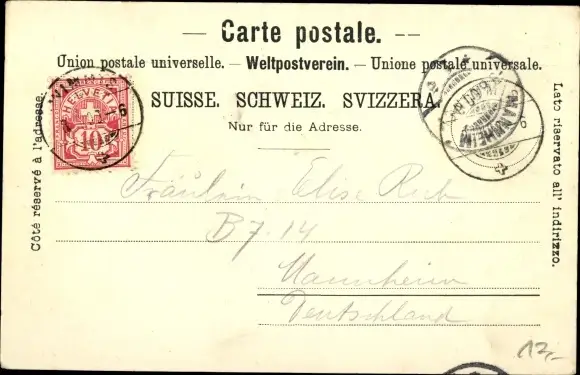 — Carte postale. —
Union postale universelle. — Weltpostverein. — Unione postale universale.
SUISSE. SCHWEIZ. SVIZZERA.
Nur für die Adresse.
Côté réservé à l'adresse.
Lato riservato all' indirizzo.
HELVETIA
10
6
MANNHEIM
6
Fräulein Elise Reeb
B 7. 14
Mannheim
Deutschland
12,-